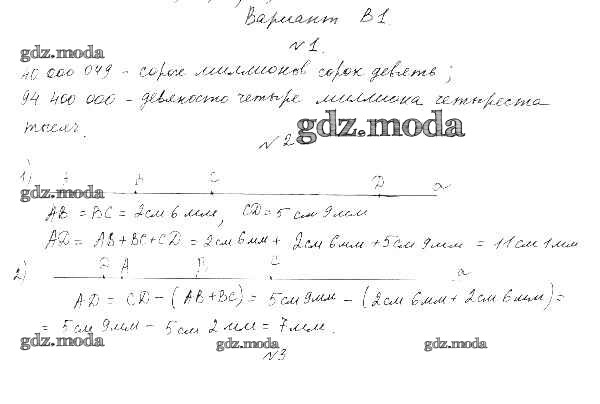 Вариант В1.
№1.
gdz.moda
40 000 049 - сорок миллионов сорок девять;
94 400 000 - девяносто четыре миллиона четыреста
тысяч.
gdz.moda
№2
1)
gdz.moda
A B C D a
AB = BC = 2см 6мм, CD = 5см 9мм
AD = AB + BC + CD = 2см 6мм + 2см 6мм + 5см 9мм = 11см 1мм
2) D A B C a
AD = CD - (AB + BC) = 5см 9мм - (2см 6мм + 2см 6мм) =
= 5см 9мм - 5см 2мм = 7мм.
gdz.moda gdz.moda gdz.moda
№3